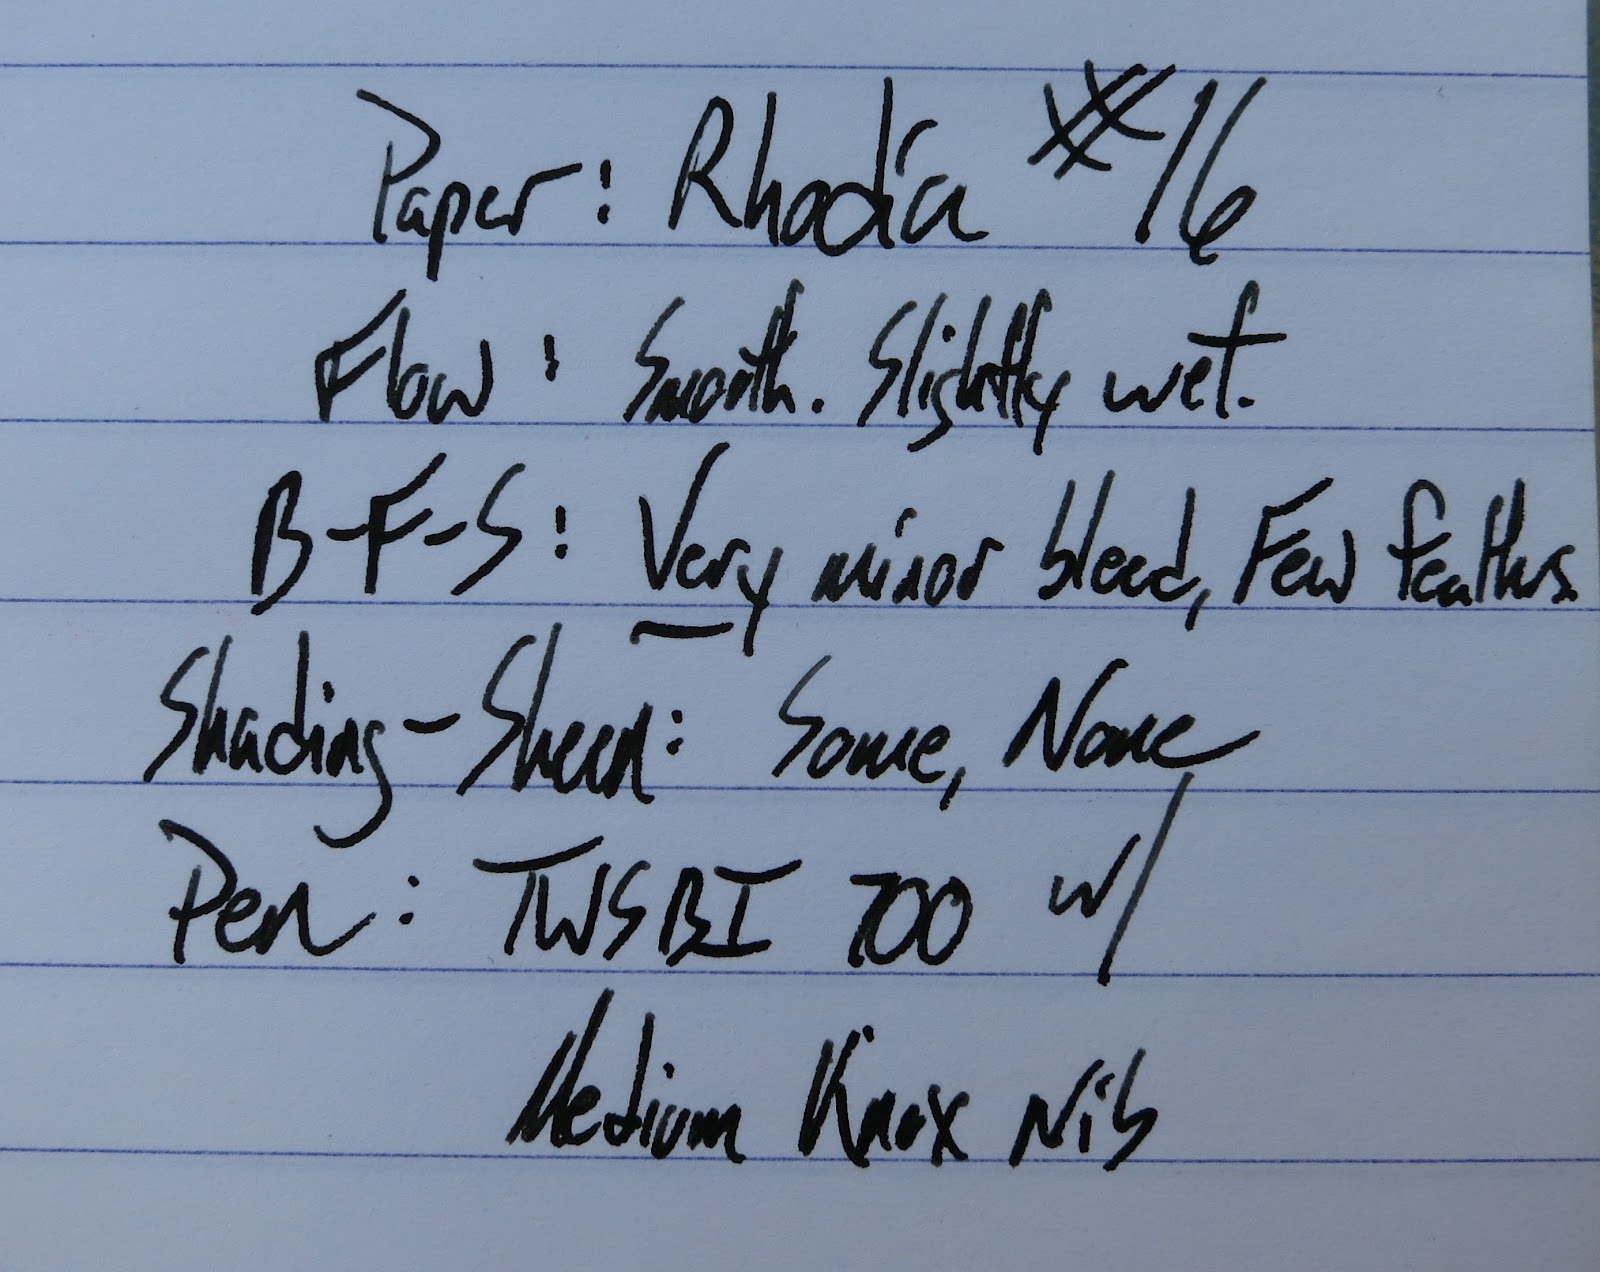 Paper: Rhodia #16
Flow: Smooth. Slightly wet.
B-F-S: Very minor bleed, Few feathers.
Shading-Sheen: Some, None
Pen: TWSBI 700 w/
Medium Knox Nib